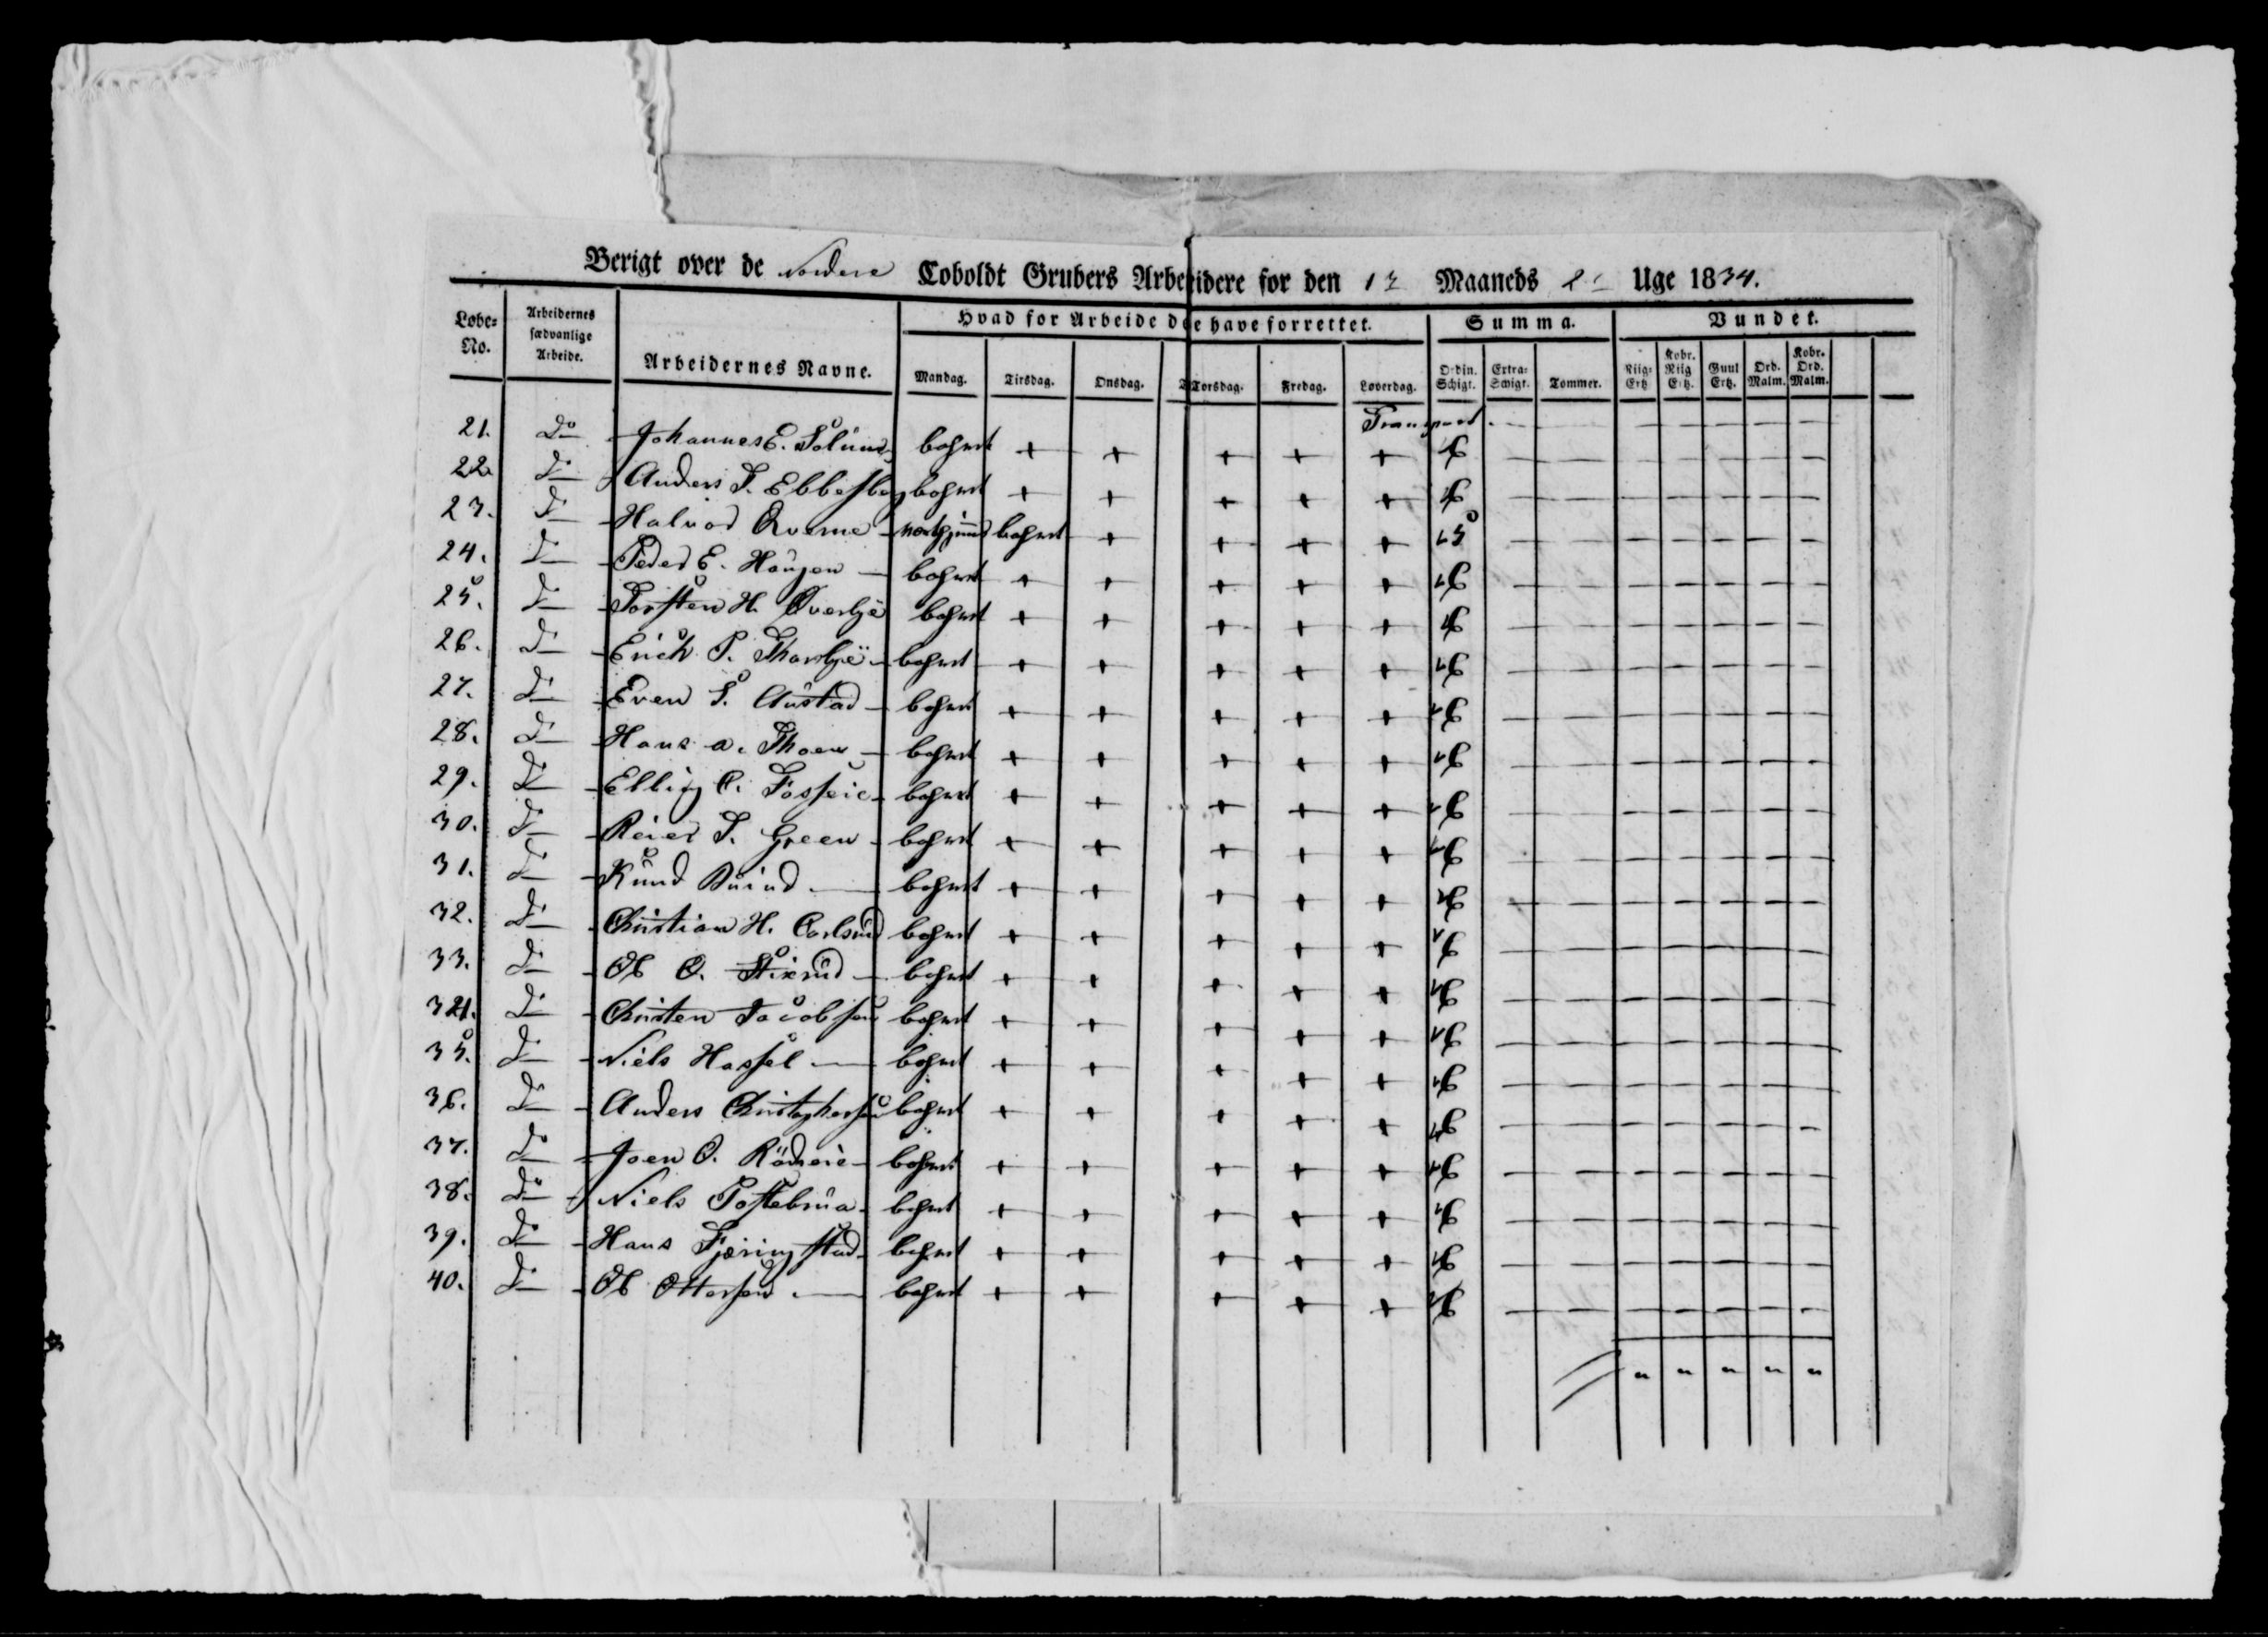 Berigt over de Nordere Coboldt Grubers Arbeidere for den 12 Maaneds 2 Uge 1834.
Løbe-No. Arbeidernes sædvanlige Arbeide. Arbeidernes Navne. Hvad for Arbeide de have forrettet. Summa. Vundet.
Mandag. Tirsdag. Onsdag. Torsdag. Fredag. Løverdag. Ordin. Schigt. Extra-Schigt. Tommer. Riig-Ertz Kobr. Riig Ertz. Guul Ertz. Ord. Malm. Kobr. Ord. Malm.
Transport. — — — — — — —
21. Do Johannes E. Solum bohret + + + + + 6 — — — — — — —
22. Do Anders T. Ebbesberg bohret + + + + + 6 — — — — — — —
23. Do Halvor Qverne bohret + + + + 5 — — — — — — —
24. Do Peder E. Haugen — bohret + + + + + 6 — — — — — — —
25. Do Torsten H. Øverbye bohret + + + + + 6 — — — — — — —
26. Do Erich P. Thorbye bohret + + + + + 6 — — — — — — —
27. Do Even S. Austad — bohret + + + + + 6 — — — — — — —
28. Do Hans A. Thoen — bohret + + + + + 6 — — — — — — —
29. Do Elling C. Fosseie bohret + + + + + 6 — — — — — — —
30. Do Reier T. Green bohret + + + + + 6 — — — — — — —
31. Do Knud — bohret + + + + + 6 — — — — — — —
32. Do Christian H. Carlsrud bohret + + + + + 6 — — — — — — —
33. Do Ole O. Stixrud — bohret + + + + + 6 — — — — — — —
34. Do Christen Jacobsen bohret + + + + + 6 — — — — — — —
35. Do Niels Hassel — bohret + + + + + 6 — — — — — — —
36. Do Anders Christophersen bohret + + + + + 6 — — — — — — —
37. Do Joen O. bohret + + + + + 6 — — — — — — —
38. Do Niels Tostebrua bohret + + + + + 6 — — — — — — —
39. Do Hans Fjæringstad bohret + + + + + 6 — — — — — — —
40. Do Ole Ottersen — bohret + + + + + 6 — — — — — — —
" " " " "